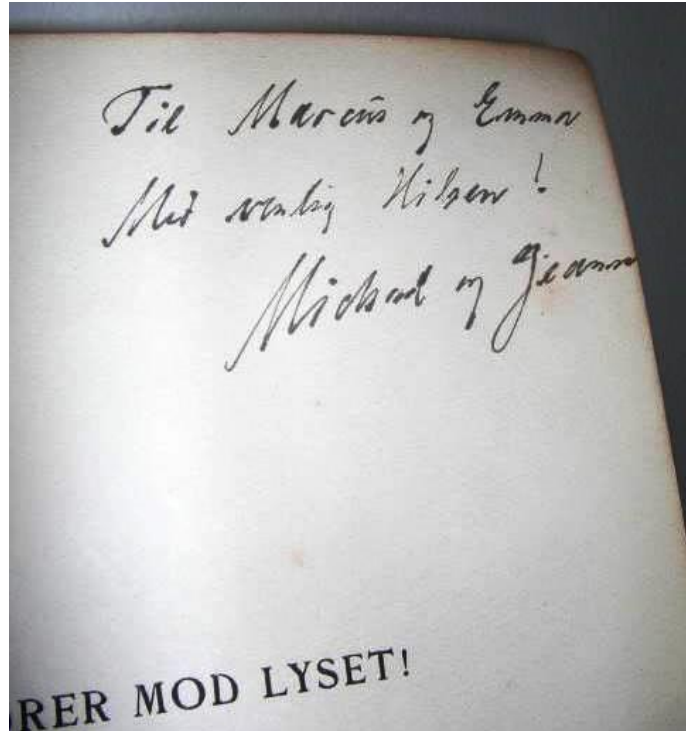 Til Marcus og Emma
Med venlig Hilsen!
Michael og Jeanne
RER MOD LYSET!